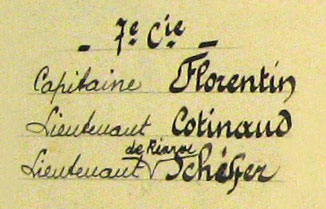 - 7e Cie -
Capitaine Florentin
Lieutenant Cotinaud
Lieutenant V Schéfer